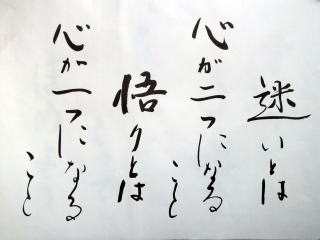 迷いとは
心が二つになる
こと
悟りとは
心が一つになる
こと